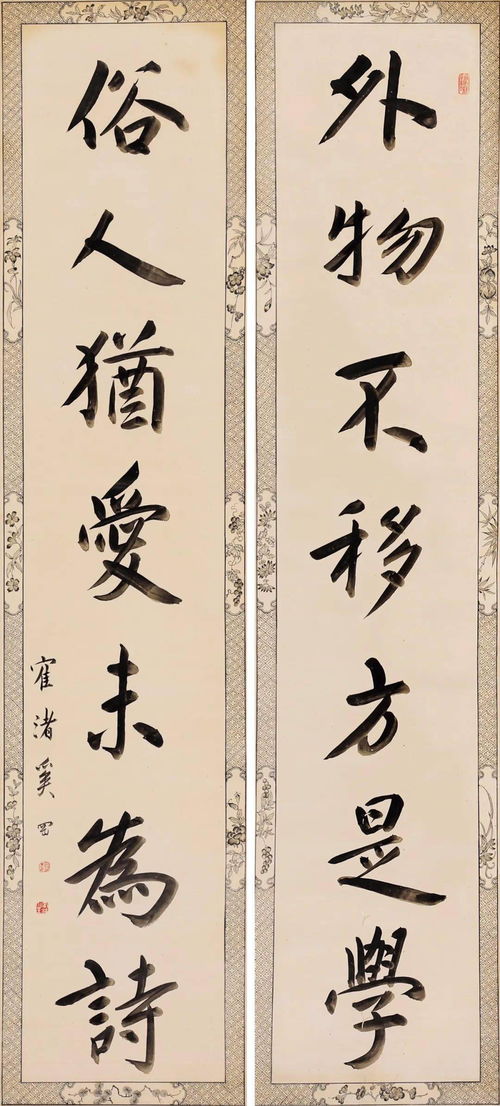 外物不移方是學
俗人猶愛未為詩
寉渚奚岡